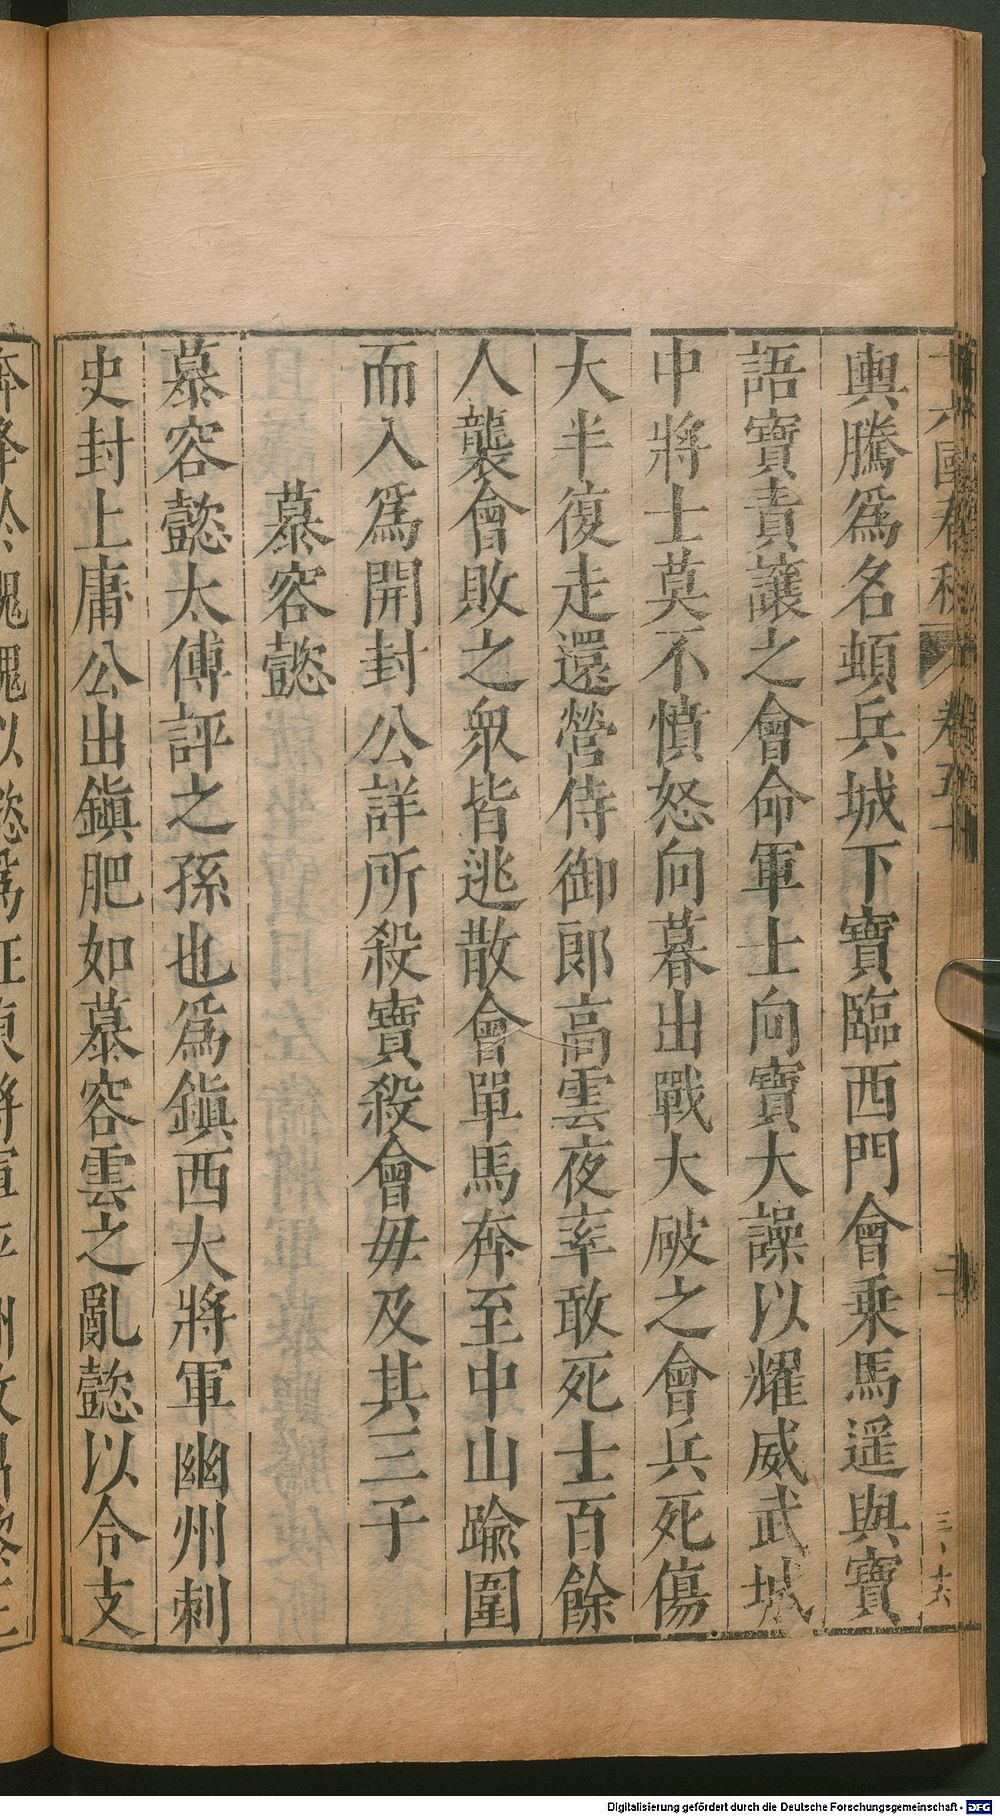 輿騰爲名頓兵城下寶臨西門會乗馬遥與寶
語寶責讓之會命軍士向寶大譟以耀威武城
中將士莫不憤怒向暮出戰大破之會兵死傷
大半復走還營侍御郎高雲夜率敢死士百餘
人襲會敗之衆皆逃散會單馬奔至中山踰圍
而入爲開封公詳所殺寶殺會毋及其三子
慕容懿
慕容懿太傅評之孫也爲鎭西大將軍幽州刺
史封上庸公出鎭肥如慕容雲之亂懿以令支
Digitalisierung gefördert durch die Deutsche Forschungsgemeinschaft - DFG